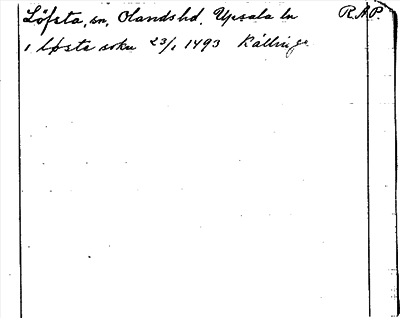 Löfsta, sn, Olands hd. Upsala ln R.A.P.
i löfsta sokn 23/1 1493 Källinge